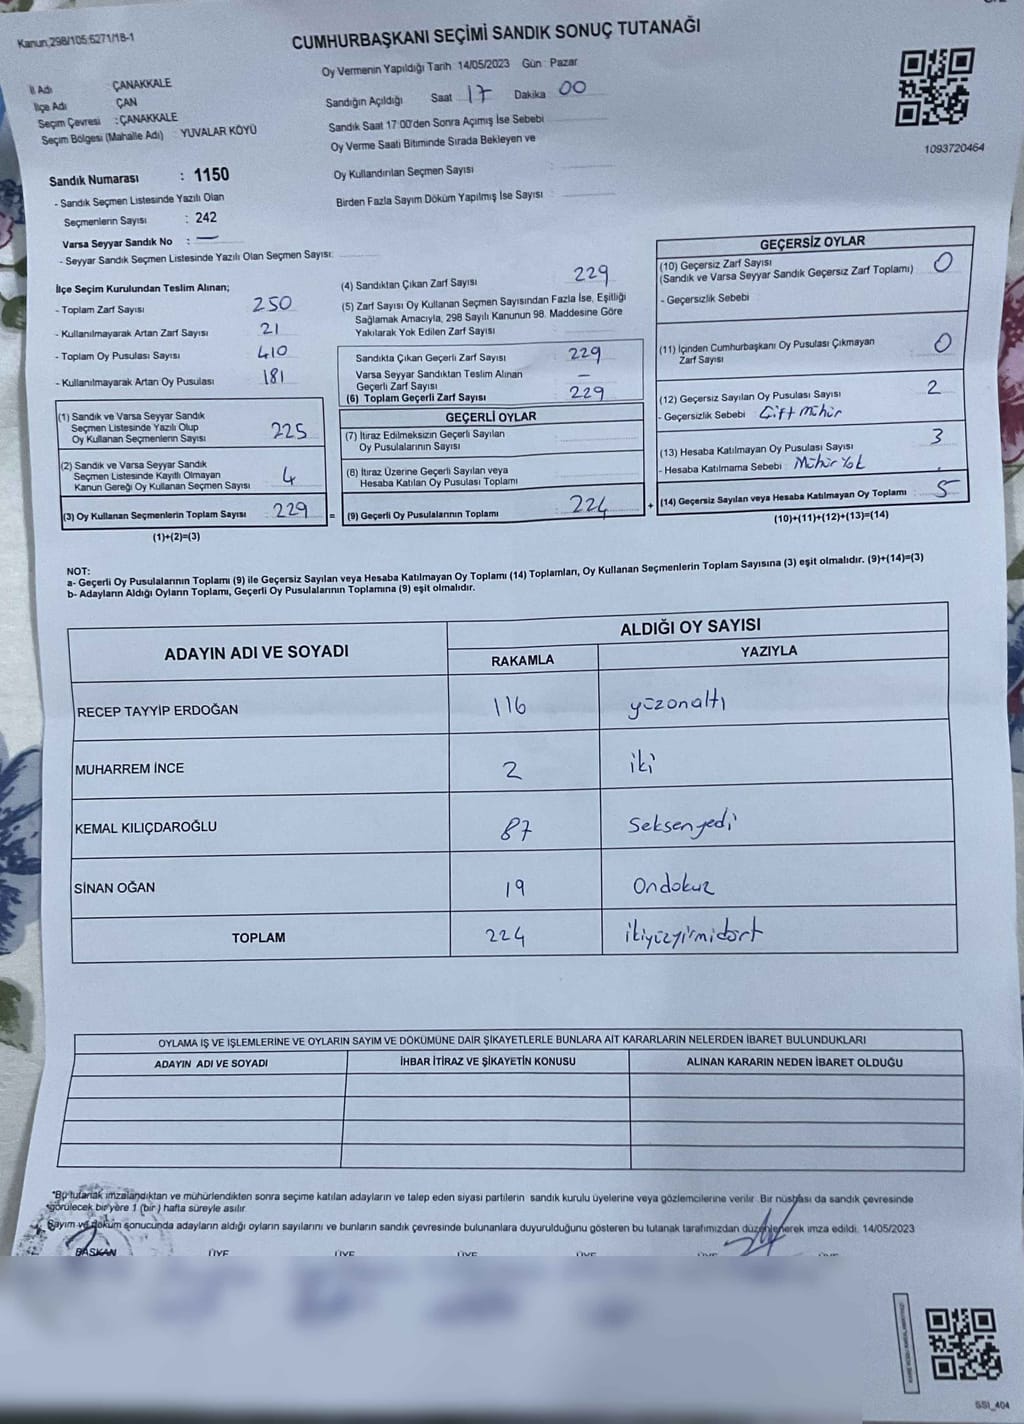 Kanun,298/105:6271/18-1
CUMHURBAŞKANI SEÇİMİ SANDIK SONUÇ TUTANAĞI
İl Adı ÇANAKKALE
İlçe Adı ÇAN
Seçim Çevresi :ÇANAKKALE
Seçim Bölgesi (Mahalle Adı) YUVALAR KÖYÜ
Oy Vermenin Yapıldığı Tarih 14/05/2023 Gün : Pazar
Sandığın Açıldığı Saat 17 Dakika 00
Sandık Saat 17:00'den Sonra Açımış İse Sebebi
Oy Verme Saati Bitiminde Sırada Bekleyen ve
Oy Kullandırılan Seçmen Sayısı
Birden Fazla Sayım Döküm Yapılmış İse Sayısı
1093720464
Sandık Numarası : 1150
- Sandık Seçmen Listesinde Yazılı Olan
Seçmenlerin Sayısı : 242
Varsa Seyyar Sandık No : —
- Seyyar Sandık Seçmen Listesinde Yazılı Olan Seçmen Sayısı:
İlçe Seçim Kurulundan Teslim Alınan;
- Toplam Zarf Sayısı 250
- Kullanılmayarak Artan Zarf Sayısı 21
- Toplam Oy Pusulası Sayısı 410
- Kullanılmayarak Artan Oy Pusulası 181
(1) Sandık ve Varsa Seyyar Sandık
Seçmen Listesinde Yazılı Olup
Oy Kullanan Seçmenlerin Sayısı 225
(2) Sandık ve Varsa Seyyar Sandık
Seçmen Listesinde Kayıtlı Olmayan
Kanun Gereği Oy Kullanan Seçmen Sayısı 4
(3) Oy Kullanan Seçmenlerin Toplam Sayısı : 229 =
(1)+(2)=(3)
(4) Sandıktan Çıkan Zarf Sayısı 229
(5) Zarf Sayısı Oy Kullanan Seçmen Sayısından Fazla İse, Eşitliği
Sağlamak Amacıyla, 298 Sayılı Kanunun 98. Maddesine Göre
Yakılarak Yok Edilen Zarf Sayısı
Sandıkta Çıkan Geçerli Zarf Sayısı 229
Varsa Seyyar Sandıktan Teslim Alınan
Geçerli Zarf Sayısı —
(6) Toplam Geçerli Zarf Sayısı 229
GEÇERLİ OYLAR
(7) İtiraz Edilmeksizin Geçerli Sayılan
Oy Pusulalarının Sayısı
(8) İtiraz Üzerine Geçerli Sayılan veya
Hesaba Katılan Oy Pusulası Toplamı
(9) Geçerli Oy Pusulalarının Toplamı 224 +
GEÇERSİZ OYLAR
(10) Geçersiz Zarf Sayısı 0
(Sandık ve Varsa Seyyar Sandık Geçersiz Zarf Toplamı)
- Geçersizlik Sebebi
(11) İçinden Cumhurbaşkanı Oy Pusulası Çıkmayan 0
Zarf Sayısı
(12) Geçersiz Sayılan Oy Pusulası Sayısı 2
- Geçersizlik Sebebi Çift mühür
(13) Hesaba Katılmayan Oy Pusulası Sayısı 3
- Hesaba Katılmama Sebebi : Mühür Yok
(14) Geçersiz Sayılan veya Hesaba Katılmayan Oy Toplamı 5
(10)+(11)+(12)+(13)=(14)
NOT:
a- Geçerli Oy Pusulalarının Toplamı (9) ile Geçersiz Sayılan veya Hesaba Katılmayan Oy Toplamı (14) Toplamları, Oy Kullanan Seçmenlerin Toplam Sayısına (3) eşit olmalıdır. (9)+(14)=(3)
b- Adayların Aldığı Oyların Toplamı, Geçerli Oy Pusulalarının Toplamına (9) eşit olmalıdır.
ADAYIN ADI VE SOYADI ALDIĞI OY SAYISI
RAKAMLA YAZIYLA
RECEP TAYYİP ERDOĞAN 116 yüzonaltı
MUHARREM İNCE 2 iki
KEMAL KILIÇDAROĞLU 87 Seksenyedi
SİNAN OĞAN 19 Ondokuz
TOPLAM 224 ikiyüzyirmidört
OYLAMA İŞ VE İŞLEMLERİNE VE OYLARIN SAYIM VE DÖKÜMÜNE DAİR ŞİKAYETLERLE BUNLARA AİT KARARLARIN NELERDEN İBARET BULUNDUKLARI
ADAYIN ADI VE SOYADI İHBAR İTİRAZ VE ŞİKAYETİN KONUSU ALINAN KARARIN NEDEN İBARET OLDUĞU
*Bu tutanak imzalandıktan ve mühürlendikten sonra seçime katılan adayların ve talep eden siyasi partilerin sandık kurulu üyelerine veya gözlemcilerine verilir. Bir nüshası da sandık çevresinde
görülecek bir yere 1 (bir) hafta süreyle asılır.
Sayım ve döküm sonucunda adayların aldığı oyların sayılarını ve bunların sandık çevresinde bulunanlara duyurulduğunu gösteren bu tutanak tarafımızdan düzenlenerek imza edildi. 14/05/2023
BAŞKAN ÜYE ÜYE ÜYE ÜYE ÜYE ÜYE
SSI_404